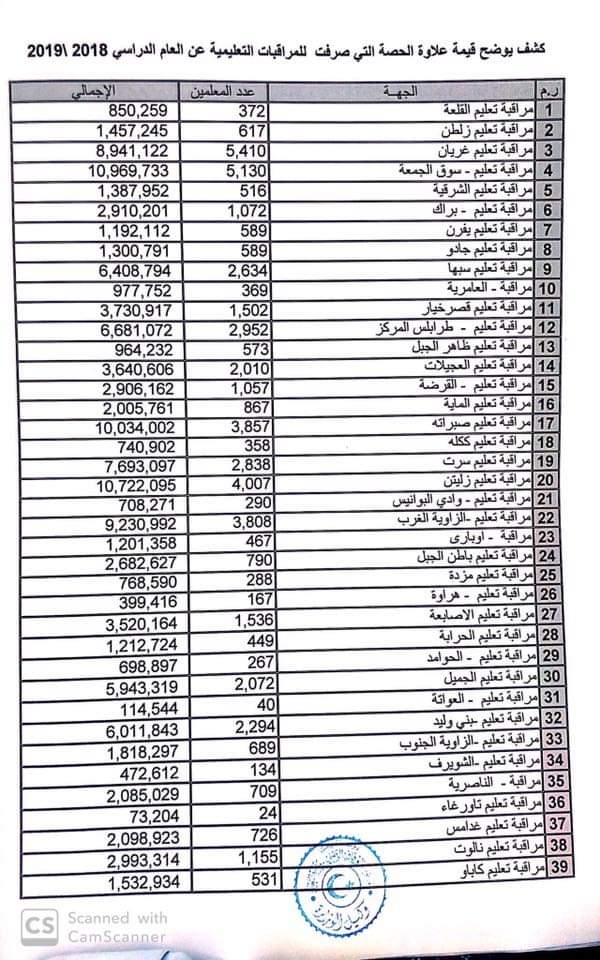 كشف يوضح قيمة علاوة الحصة التي صرفت للمراقبات التعليمية عن العام الدراسي 2018 \2019
ر.م الجهـة عدد المعلمين الإجمالي
1 مراقبة تعليم القلعة 372 850,259
2 مراقبة تعليم زلطن 617 1,457,245
3 مراقبة تعليم غريان 5,410 8,941,122
4 مراقبة تعليم - سوق الجمعة 5,130 10,969,733
5 مراقبة تعليم الشرقية 516 1,387,952
6 مراقبة تعليم - براك 1,072 2,910,201
7 مراقبة تعليم يفرن 589 1,192,112
8 مراقبة تعليم جادو 589 1,300,791
9 مراقبة تعليم سبها 2,634 6,408,794
10 مراقبة - العامرية 369 977,752
11 مراقبة تعليم قصرخيار 1,502 3,730,917
12 مراقبة تعليم - طرابلس المركز 2,952 6,681,072
13 مراقبة تعليم ظاهر الجبل 573 964,232
14 مراقبة تعليم العجيلات 2,010 3,640,606
15 مراقبة تعليم - القرضة 1,057 2,906,162
16 مراقبة تعليم الماية 867 2,005,761
17 مراقبة تعليم صبراته 3,857 10,034,002
18 مراقبة تعليم ككله 358 740,902
19 مراقبة تعليم سرت 2,838 7,693,097
20 مراقبة تعليم زليتن 4,007 10,722,095
21 مراقبة تعليم - وادي البوانيس 290 708,271
22 مراقبة تعليم -الزاوية الغرب 3,808 9,230,992
23 مراقبة - اوبارى 467 1,201,358
24 مراقبة تعليم باطن الجبل 790 2,682,627
25 مراقبة تعليم مزدة 288 768,590
26 مراقبة تعليم - هراوة 167 399,416
27 مراقبة تعليم الاصابعة 1,536 3,520,164
28 مراقبة تعليم الحرابة 449 1,212,724
29 مراقبة تعليم - الحوامد 267 698,897
30 مراقبة تعليم الجميل 2,072 5,943,319
31 مراقبة تعليم - العواتة 40 114,544
32 مراقبة تعليم -بني وليد 2,294 6,011,843
33 مراقبة تعليم -الزاوية الجنوب 689 1,818,297
34 مراقبة تعليم -الشويرف 134 472,612
35 مراقبة - الناصرية 709 2,085,029
36 مراقبة تعليم تاورغاء 24 73,204
37 مراقبة تعليم غدامس 726 2,098,923
38 مراقبة تعليم نالوت 1,155 2,993,314
39 مراقبة تعليم كاباو 531 1,532,934
وكيل الوزارة
CS Scanned with
CamScanner